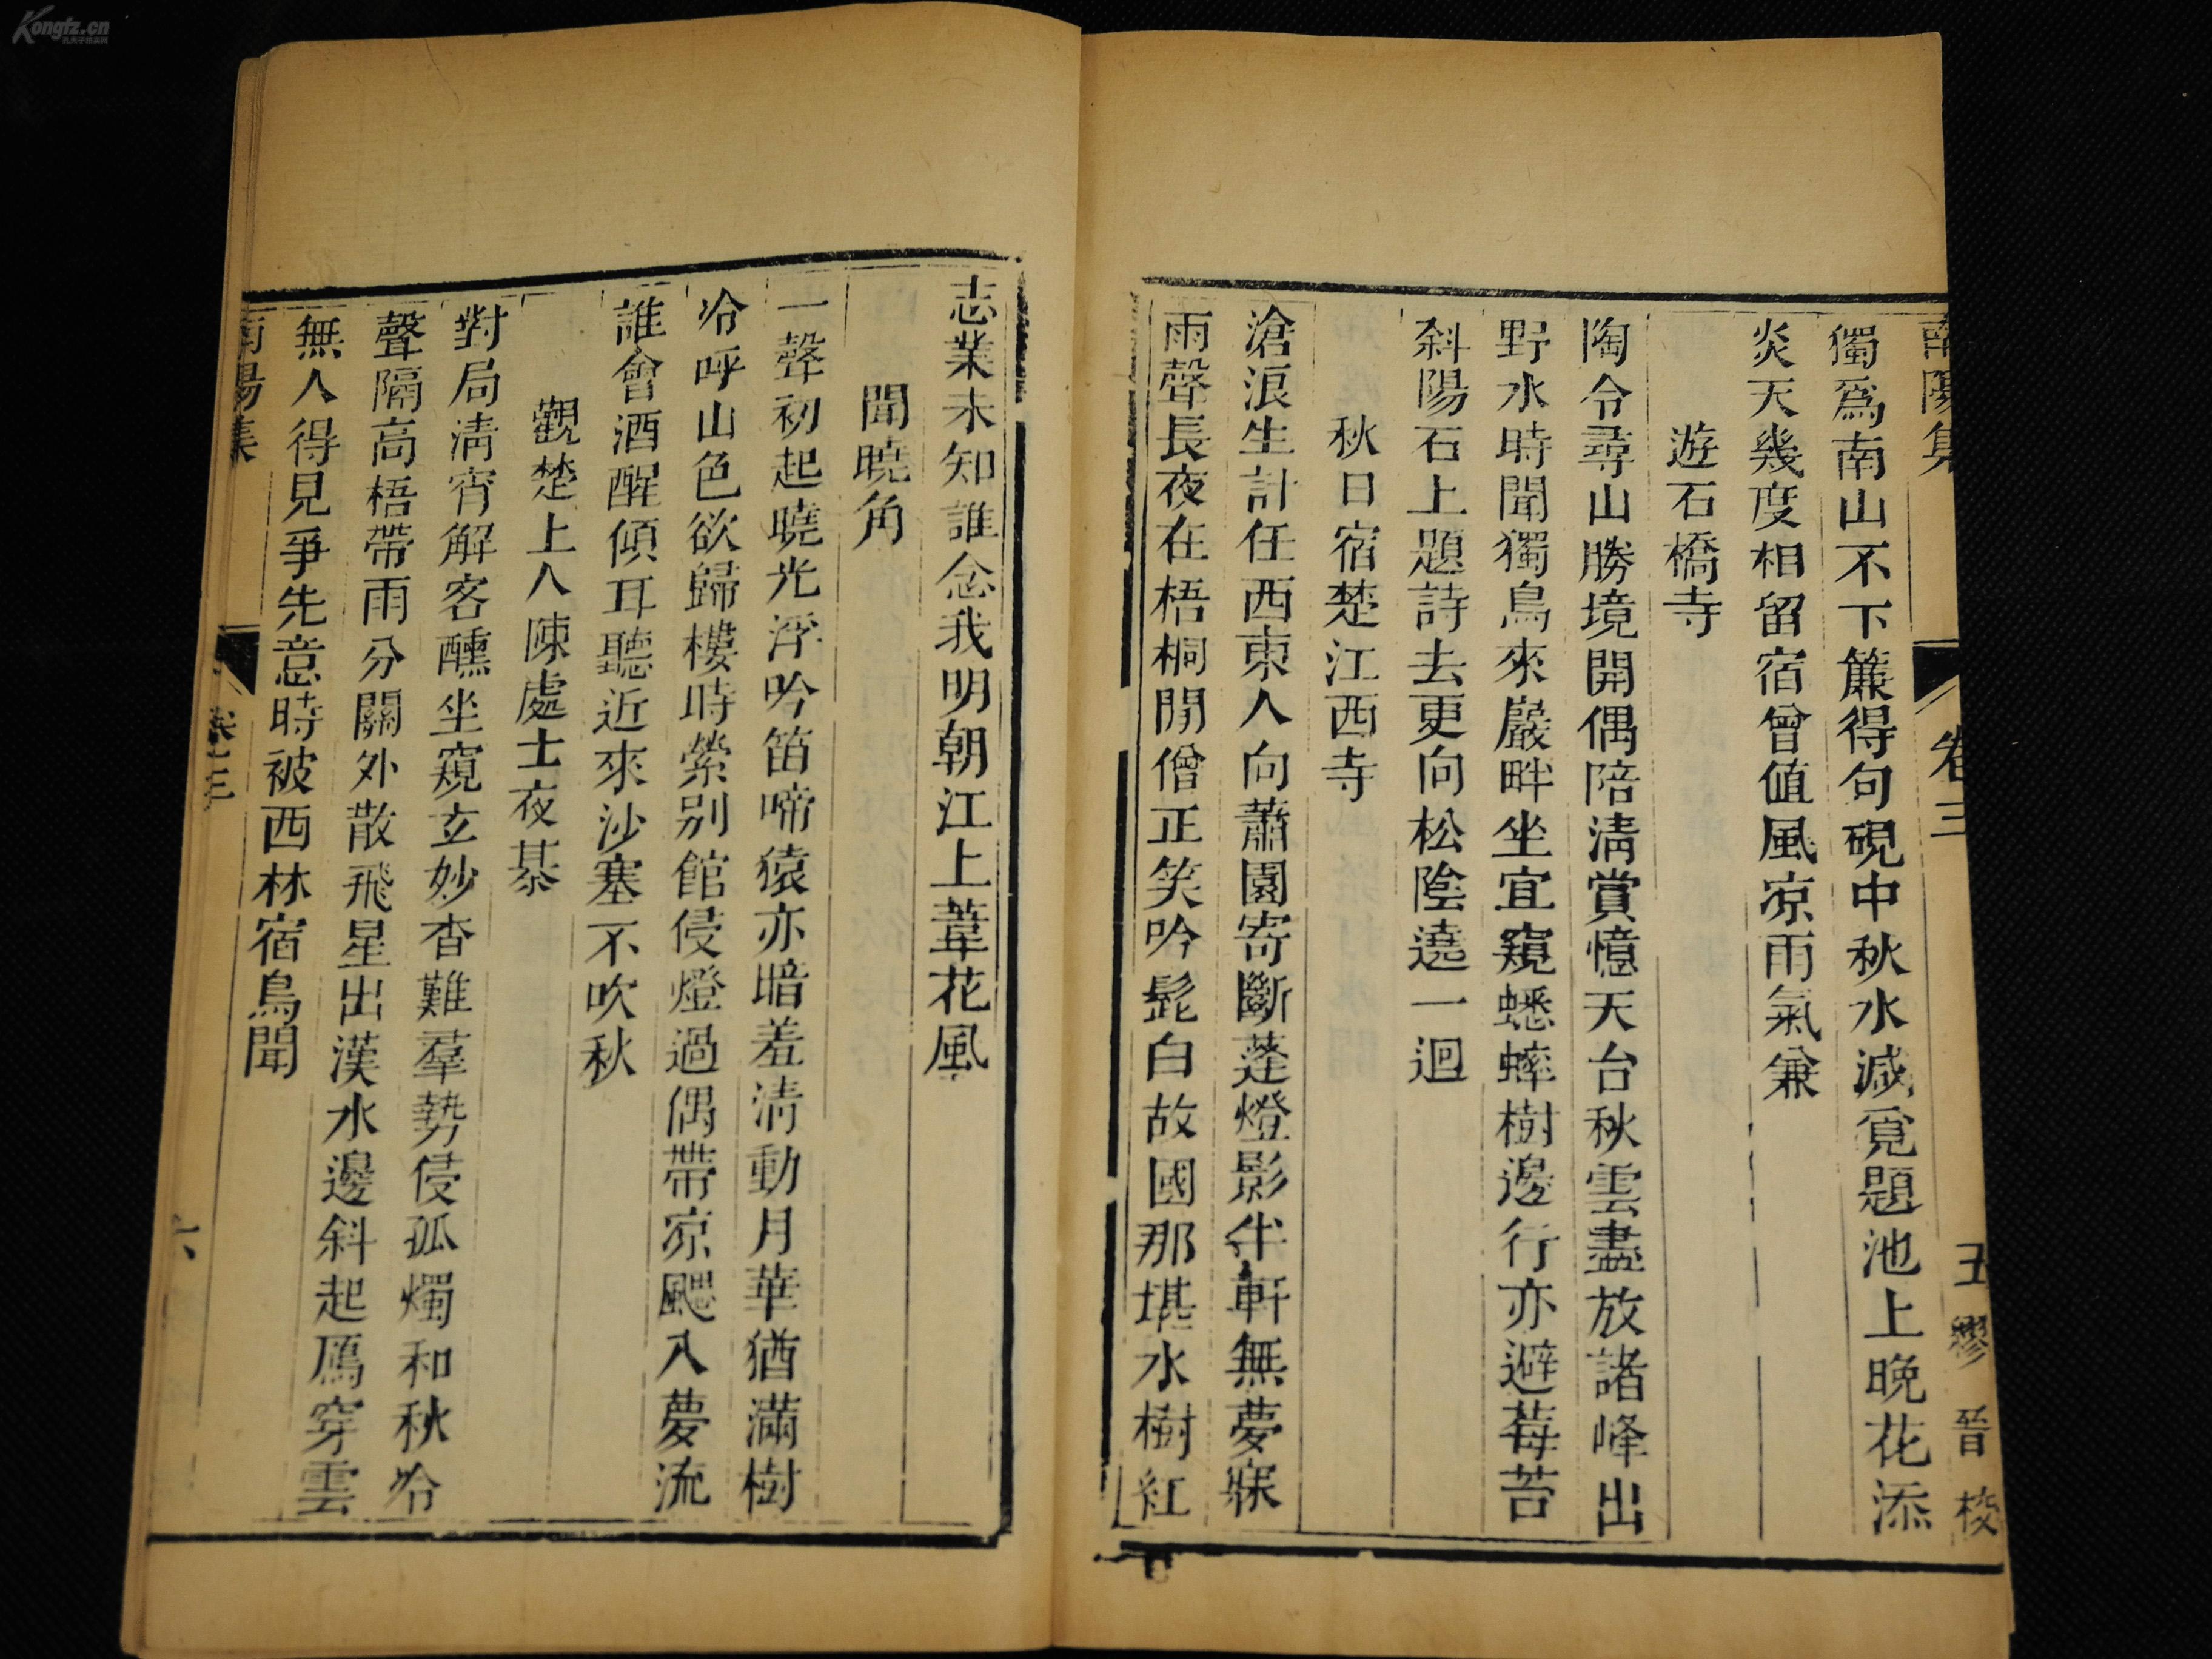 南陽集
卷三
五 繆晉校
獨爲南山不下簾得句硯中秋水減覓題池上晚花添
炎天幾度相留宿曾値風凉雨氣兼
遊石橋寺
陶令尋山勝境開偶陪清賞憶天台秋雲盡放諸峰出
野水時聞獨鳥來巖畔坐宜窺蟋蟀樹邊行亦避莓苔
斜陽石上題詩去更向松陰遶一迴
秋日宿楚江西寺
滄浪生計任西東人向蕭園寄斷蓬燈影半軒無夢寐
雨聲長夜在梧桐閒僧正笑吟髭白故國那堪水樹紅
志業未知誰念我明朝江上葦花風
聞曉角
一聲初起曉光浮吟笛啼猿亦暗羞清動月華猶滿樹
冷呼山色欲歸樓時縈别館侵燈過偶帶凉颸入夢流
誰會酒醒傾耳聽近來沙塞不吹秋
觀楚上人陳處士夜棊
對局清宵解客醺坐窺玄妙杳難羣勢侵孤燭和秋冷
聲隔高梧帶雨分關外散飛星出漢水邊斜起鴈穿雲
無人得見爭先意時被西林宿鳥聞
南陽集
卷三
六
Kongfz.cn